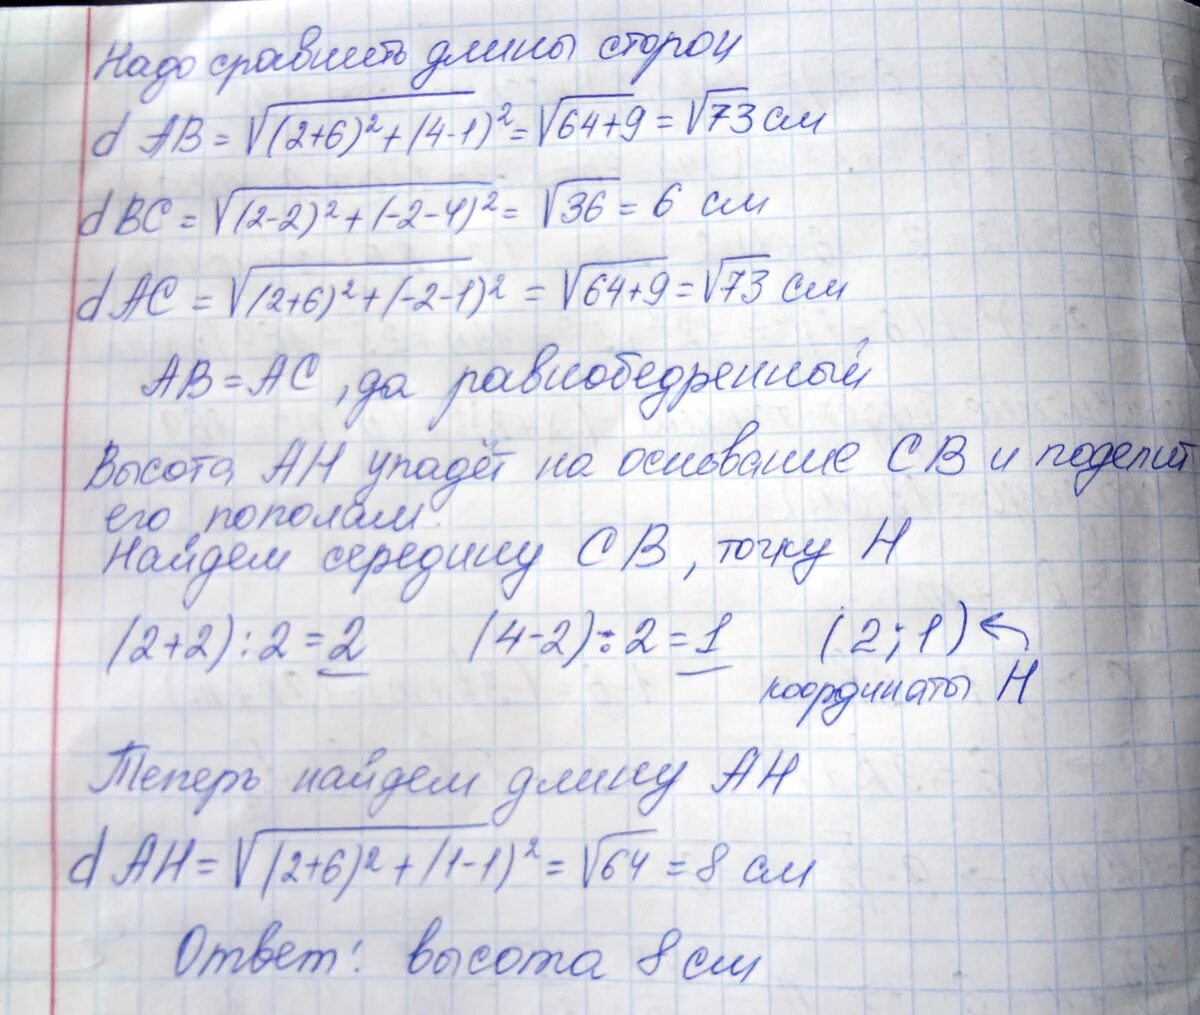 Надо сравнить длины сторон
d AB = √(2+6)² + (4-1)² = √64+9 = √73 см
d BC = √(2-2)² + (-2-4)² = √36 = 6 см
d AC = √(2+6)² + (-2-1)² = √64+9 = √73 см
AB = AC, да равнобедренный
Высота AH упадёт на основание CB и поделит
его пополам.
Найдем середину CB, точку H
(2+2):2=2 (4-2):2=1 (2;1)
координаты H
Теперь найдем длину AH
d AH = √(2+6)² + (1-1)² = √64 = 8 см
Ответ: высота 8 см